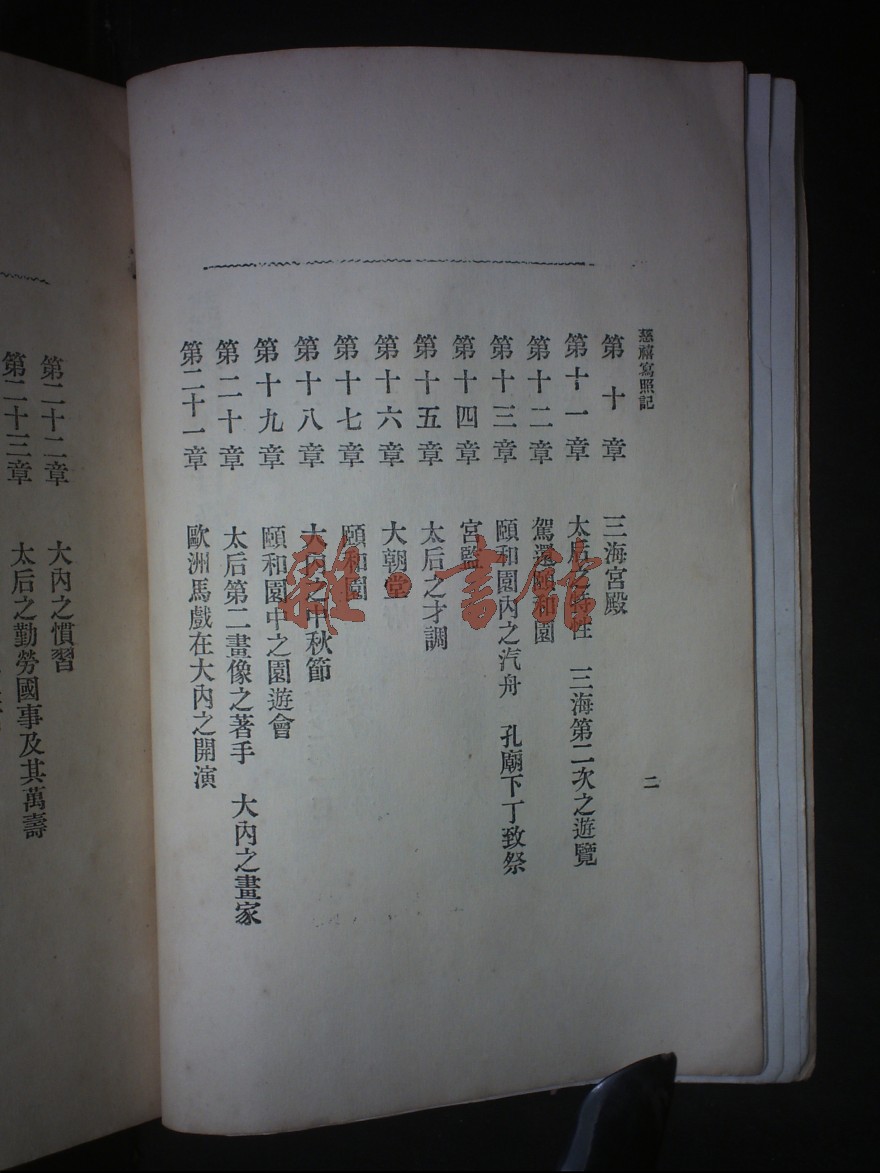 慈禧寫照記
第十章 三海宮殿
第十一章 太后之特性 三海第二次之遊覽
第十二章 駕還頤和園
第十三章 頤和園內之汽舟 孔廟下丁致祭
第十四章 宮監
第十五章 太后之才調
第十六章 大朝堂
第十七章 頤和園
第十八章 大內之中秋節
第十九章 頤和園中之園遊會
第二十章 太后第二畫像之著手 大內之畫家
第二十一章 歐洲馬戲在大內之開演
二
第二十二章 大內之慣習
第二十三章 太后之勤勞國事及其萬壽
雜·書館